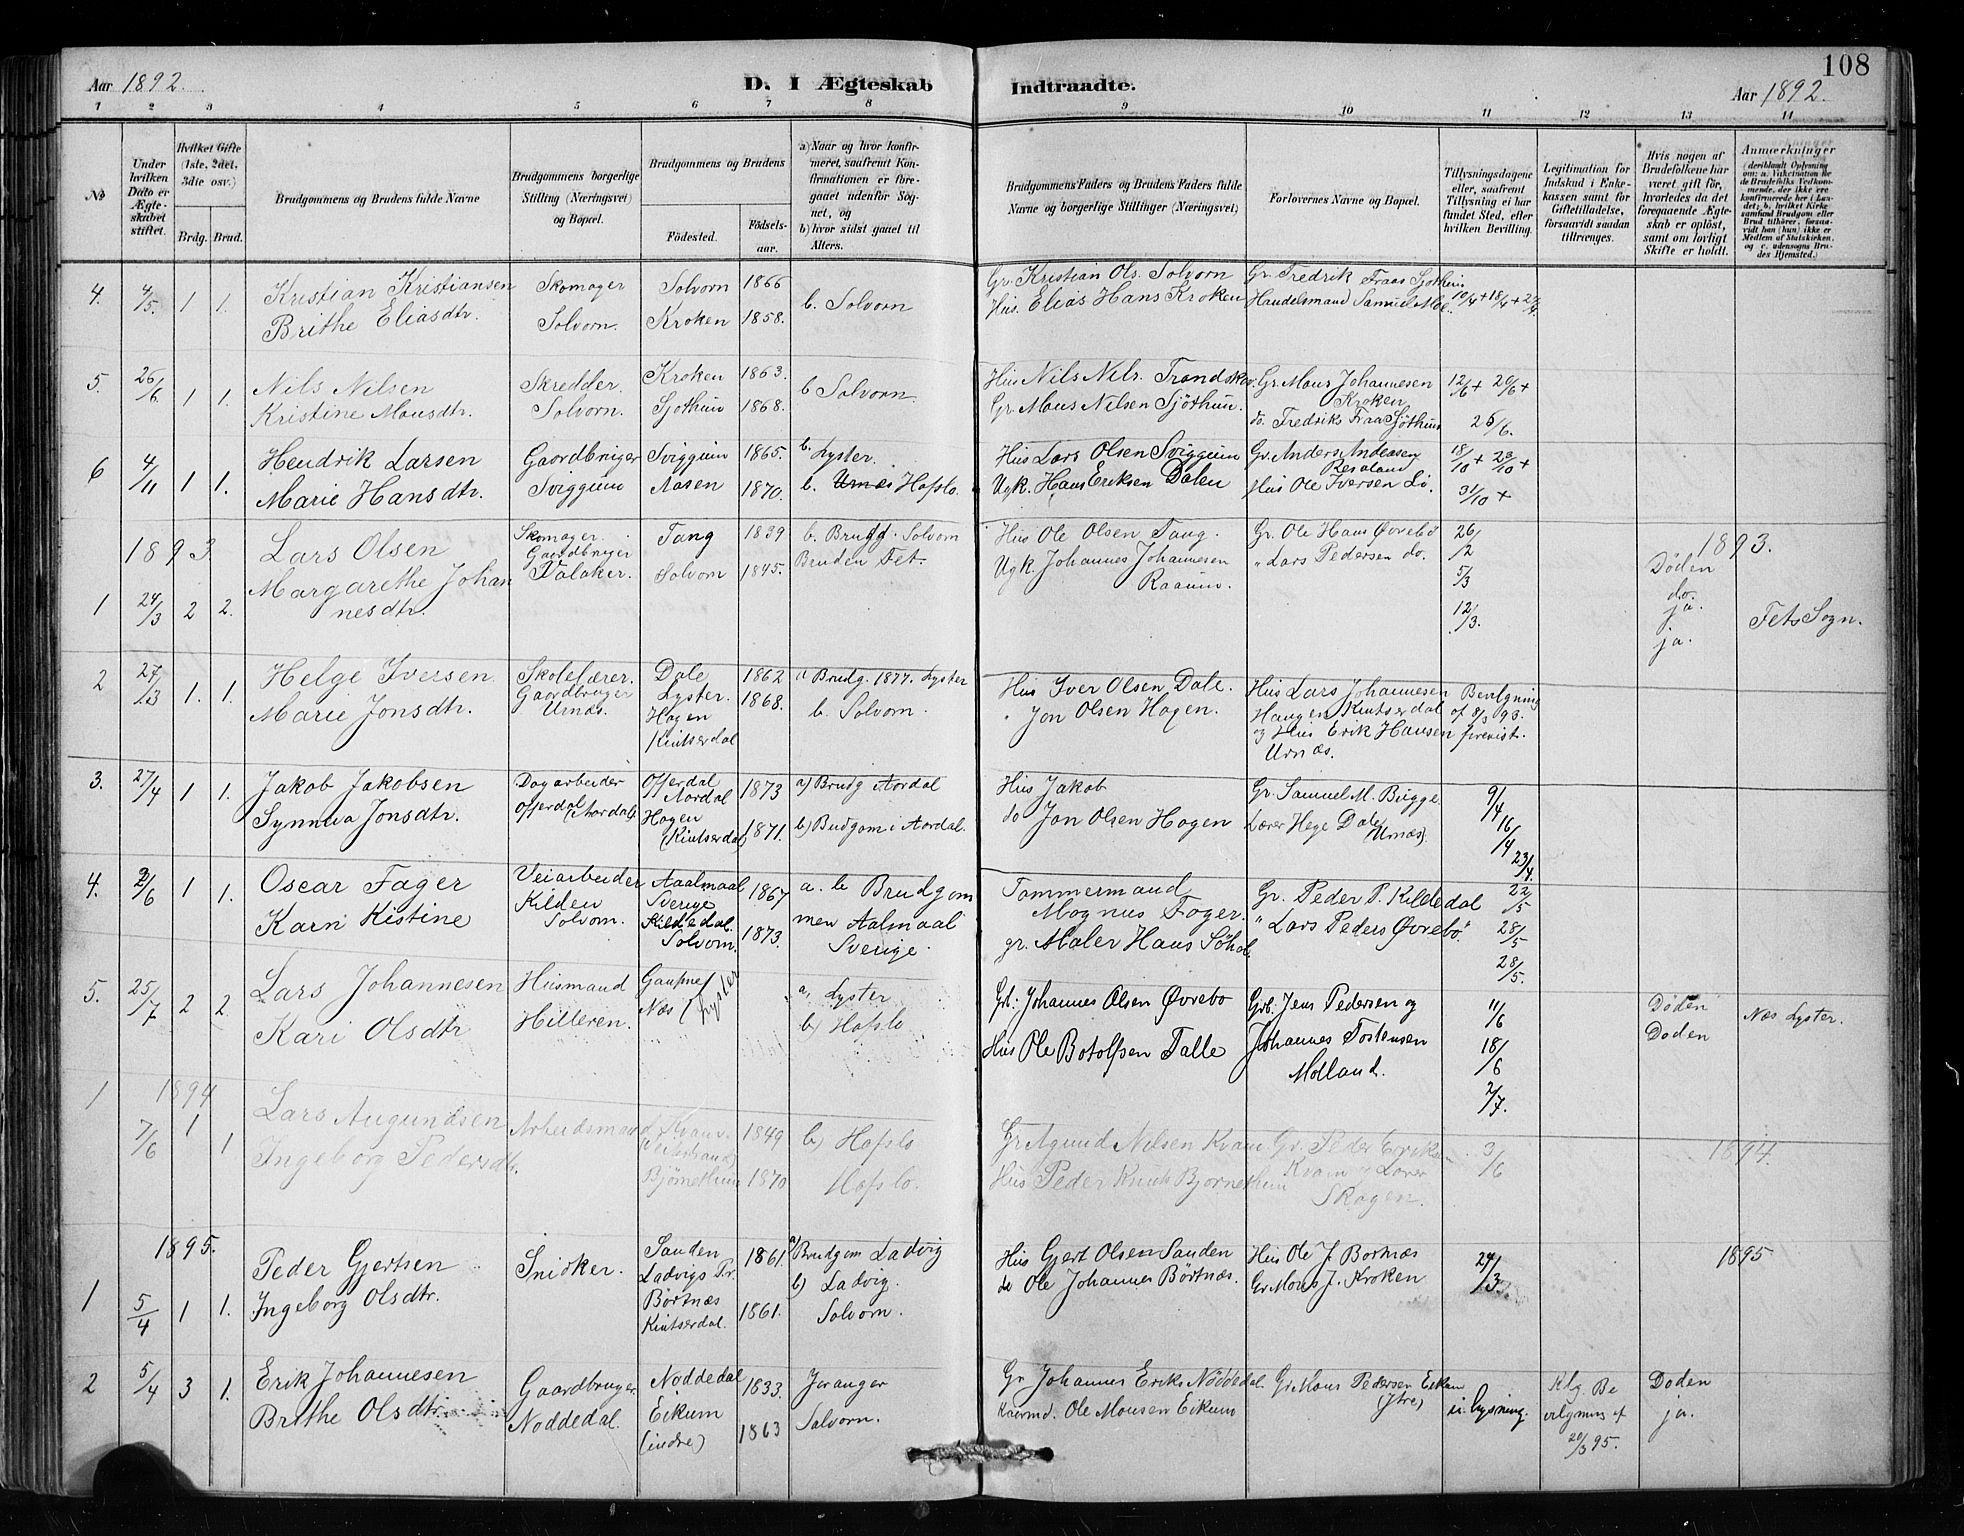 108
Aar 1892.
D. I Ægteskab Indtraadte.
Aar 1892.
1 2 3 4 5 6 7 8 9 10 11 12 13 14
No
Under hvilken Dato er Ægteskabet stiftet.
Hvilket Gifte (1ste, 2det, 3die osv.)
Brdg. Brud.
Brudgommens og Brudens fulde Navne
Brudgommens borgerlige Stilling (Næringsvei) og Bopæl.
Brudgommens og Brudens
Fødested.
Fødselsaar.
a) Naar og hvor konfirmeret, saafremt Konfirmationen er foregaaet udenfor Sognet, og
b) hvor sidst gaaet til Alters.
Brudgommens Faders og Brudens Faders fulde Navne og borgerlige Stillinger (Næringsvei)
Forlovernes Navne og Bopæl.
Tillysningsdagene eller, saafremt Tillysning ei har fundet Sted, efter hvilken Bevilling.
Legitimation for Indskud i Enkekassen samt for Giftetilladelse, forsaavidt saadan tiltrænges.
Hvis nogen af Brudefolkene har været gift før, hvorledes da det foregaaende Ægteskab er opløst, samt om lovligt Skifte er holdt.
Anmerkninger
4. 4/5. 1 1. Kristian Kristiansen Skomager Solvorn 1866 b. Solvorn Gr. Kristian Ols. Solvorn Gr. Fredrik Fraas Sjøthun 10/4 + 18/4 + 24/4.
Brithe Eliasdtr. Solvorn. Kroken 1858. Hus. Elias Hans Kroken Handelsmand Samuel Moe.
5. 26/6 1 1. Nils Nilsen Skredder. Kroken 1863. b Solvorn. Hus Nils Nils. Gr. Mons Johannesen Kroken 12/6 + 20/6 +
Kristine Monsdtr. Solvorn. Sjøthun 1868. Gr. Mons Nilsen Sjøthun. do. Fredriks Fraas Sjøthun 26/6.
6 4/11 1 1. Hendrik Larsen Gaardbruger Sviggum 1865. b. Lyster. Hus Lars Olsen Sviggum Gr. Anders Andeasen 18/10 + 23/10 +
Marie Hansdtr. Sviggum Aasen 1870. b. Urnæs Hafslo. Ugk. Hans Eriksen Dalen Hus Ole Iversen Li. 31/10 +
1893 1893.
1 24/3 2 2. Lars Olsen Skomager. Gaardbruger Tang 1839 b. Brudg. Solvorn Hus Ole Olsen Tang. Gr. Ole Hans Øvrebø 26/2 Døden do.
Margarethe Johannesdtr. Valaker. Solvorn 1845. Bruden Fet. Ugk. Johannes Johannesen Raaum. " Lars Pedersen do. 5/3 12/3. ja. ja. Fets Sogn.
2 27/3 1. 1. Helge Iversen Skolelærer. Dale Lyster. 1862 a Brudg. 1877. Lyster Hus Yver Olsen Dale. Hus Lars Johannesen Haugen Kintserdal
Marie Jonsdtr. Gaardbruger Urnæs. Hagen Kintserdal 1868. b. Solvorn. " Jon Olsen Hagen. og Hus Erik Hansen Urnæs. af 8/3 93.
3. 27/4 1 1. Jakob Jakobsen Dagarbeider Offerdal Aardal 1873 a) Brudg Aardal Hus Jakob Gr. Samuel M. Bugge 9/4
Synneva Jonsdtr. Offerdal, Aardal. Hagen (Kintserdal) 1871. b) Budgom i Aardal. do Jon Olsen Hagen Lærer Hege Dale (Urnæs). 16/4 23/4.
4. 2/6 1 1. Oscar Fager Veiarbeider Aalmaal Sverige 1867 a. b Brudgommen Tømmermand Magnus Fager. Gr. Peder P. Kildedal 22/5
Karn Kistine Kilden Solvorn. Kildedal. Solvorn. 1873. Aalmaal Sverige. gr. Maler Hans " Lars Peders Øvrebø. 28/5 28/5.
5. 25/7 2 2. Lars Johannesen Husmand Gaupne a. Lyster Grb. Johannes Olsen Øvrebø Grb. Jens Pedersen og 11/6 Døden Næs Lyster.
Kari Olsdtr Hilleren. Næs (Lyster b) Hafslo Hus Ole Botolfsen Talle Johannes Tostensen Molland. 18/6 2/7. Døden
1894 1894.
1 7/6 1 1 Lars Augundsen Arbeidsmand 1849 b) Hafslo Gr Agund Nilsen Kvam Gr. Peder 3/6
Ingeborg Pedersdtr. Bjørnethun 1870 Hafslo. Hus Peder Knuts Bjørnethun Kvam og Lærer Skagen.
1895. 1895
1 5/4 1 1. Peder Gjertsen Snidker. Sanden Ladvigs Pr. 1861. a) Brudgom Ladvig Hus Gjert Olsen Sanden Hus Ole J. Bortnæs 24/3
Ingeborg Olsdtr. Børtnæs Kintserdal. 1861. b) Ladvig. Solvorn. do Ole Johannes Børtnæs. Gr. Mons J. Kroken
2 5/4 3 1. Erik Johannesen Gaardbruger Noddedal 1833. Joranger Gr Johannes Eriks Nøddedal Gr Mons Pedersen Eikum (Ytre) u. lysning. Klg. Bevilgning af 20/3 95. Døden
Brithe Olsdtr. Noddedal. Eikum (indre) 1863 Solvorn. Ole Monsen Eikum ja.